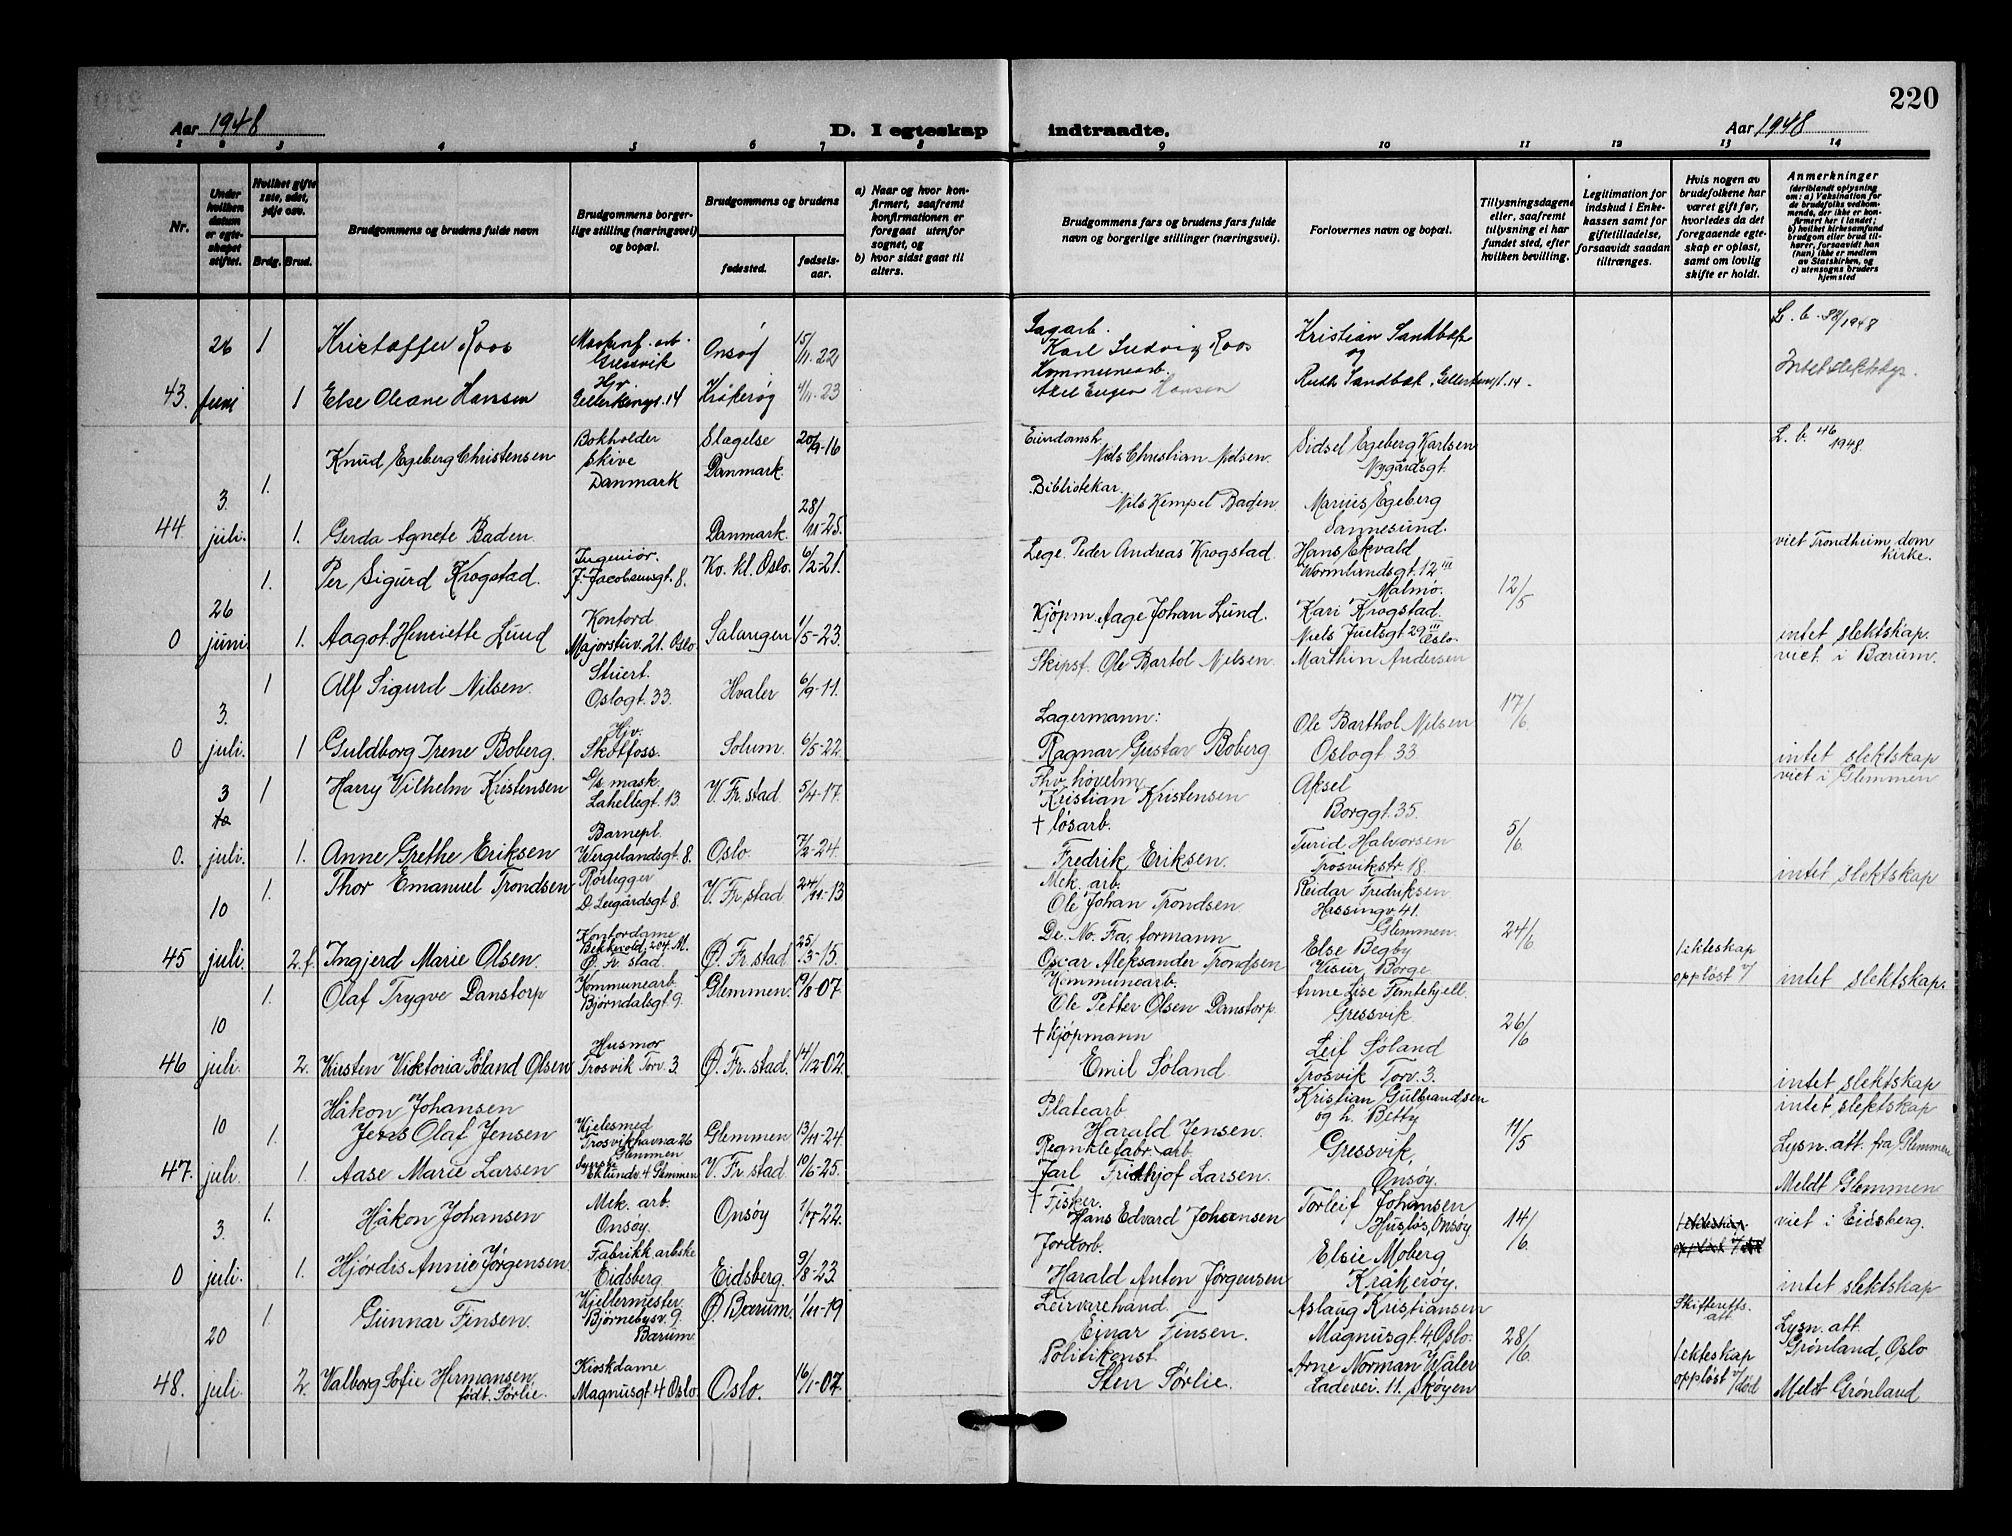 220
Aar 1948
D. I egteskap indtraadte.
Aar 1948
1 2 3 4 5 6 7 8 9 10 11 12 13 14
Nr.
Under hvilken datum er egteskapet stiftet.
Hvilket gifte 1ste, 2det, 3dje osv.
Brdg. Brud.
Brudgommens og brudens fulde navn
Brudgommens borgerlige stilling (næringsvei) og bopæl.
Brudgommens og brudens
fødested.
fødselsaar.
a) Naar og hvor konfirmert, saafremt konfirmationen er foregaat utenfor sognet, og
b) hvor sidst gaat til alters.
Brudgommens fars og brudens fars fulde navn og borgerlige stillinger (næringsvei).
Forlovernes navn og bopæl.
Tillysningsdagene eller, saafremt tillysning ei har fundet sted, efter hvilken bevilling.
Legitimation for indskud i Enkekassen samt for giftetilladelse, forsaavidt saadan tiltrænges.
Hvis nogen av brudefolkene har været gift før, hvorledes da det foregaaende egteskap er opløst, samt om lovlig skifte er holdt.
Anmerkninger
(deriblandt oplysning om: a) Vaksination for de brudefolks vedkommende, der ikke er konfirmert her i landet; b) hvilket kirkesamfund brudgom eller brud tilhører, forsaavidt han (hun) ikke er medlem av Statskirken, og c) utensogns bruders hjemsted
26 1 Kristoffer Roos Gressvik Onsøy 15/11-22 Karl Ludvig Roos Kristian Sandbæk og L. b. 38/1948
43. juni 1 Else Oleane Hansen Hjv. Gellertsengt. 14 Kråkerøy 4/11-23 Kommunearb. Axel Eugen Hansen Ruth Sandbæk, 14. Intet slektskp.
Knud Egeberg Christensen Bokholder Skive Danmark Slagelse Danmark 20/9-16 Niels Christian Nielsen. Sidsel Egeberg Karlsen Nygårdsgt. L. b. 46 1948.
1.
44. 3. juli. 1. Gerda Agnete Baden. Danmark. 28/11-25. Bibliotekar. Nils Kempel Baden. Marius Egeberg Sannesund.
1. Per Sigurd Krogstad. Ingeniør. J. Jacobsensgt. 8. Ko. kl. Oslo. 6/2-21. Lege. Peder Andreas Krogstad. Hans Ekvald Wormlandsgt. 12 III Malmø. 12/5 viet Trondheim dom kirke.
0 26 juni. 1. Aagot Henriette Lund Kontord Majorstuv. 21. Oslo Salangen 1/5-23. Kjøpm. Aage Johan Lund. Kari Krogstad. Niels Juelsgt 29 III Oslo. intet slektskap.
1 Alf Sigurd Nilsen. Stuert. Oslogt. 33. Hvaler 6/9-11. Skipsf. Ole Bartol Nilsen. Marthin Andersen viet i Bærum.
0 3. juli. 1 Guldborg Irene Boberg. Hjv. Skotfoss. Solum. 6/5-22. Lagermann: Ragnar Gustav Boberg Ole Barthol Nilsen Oslogt 33 17/6 intet slektskap
3 1 Harry Vilhelm Kristensen mask. Lahellegt. 13. V. Fr. stad 5/4-17. Kristian Kristensen Aksel Borggt. 35. viet i Glemmen
0. juli. 1. Anne Grethe Eriksen Barnepl. Wergelandsgt. 8. Oslo. 7/2-24. † løsarb. Fredrik Eriksen. Turid Halvorsen Trosvikstr. 18. 5/6. intet slektskap
1. Thor Emanuel Trondsen. Rørlegger D. Leegårdsgt 8. V. Fr. stad 24/11-13 Mek. arb. Ole Johan Trondsen Reidar Fredriksen Hassingv. 41. Glemmen.
45 10 juli. 2.f. Ingjerd Marie Olsen. Kontordame Ø. Fr. stad Ø. Fr. stad 25/3-15. De. No. Fa. formann Oscar Aleksander Trondsen Else Begby Visur, Borge 24/6 1 ekteskap oppløst v/ intet slektskap.
1. Olaf Trygve Danstorp Kommunearb. Bjørndalsgt 9. Glemmen. 19/8-07. Kommunearb. Ole Petter Olsen Danstorp. Anne Lise Femtehjell. Gressvik.
46 10 juli. 2. Kirsten Viktoria Søland Olsen Husmor Trosvik Torv. 3 Ø. Fr. stad. 14/12-02. † kjøpmann Emil Søland Leif Søland Trosvik Torv. 3. 26/6 intet slektskap
Håkon Johansen intet slektskap
10 1. Jens Olaf Jensen Kjelesmed Trosvikhavna 26 Glemmen Glemmen 13/11-24. Platearb Harald Jensen. Kristian Gulbrandsen og h. Betty 11/5 Lysn. att. fra Glemmen
47. juli. 1. Aase Marie Larsen Eklundv. 4 Glemmen V. Fr. stad 10/6-25. Jarl Fridthjof Larsen. Gressvik, Onsøy. Meldt Glemmen
3. 1. Håkon Johansen Mek. arb. Onsøy. Onsøy 1/7-22. † Fisker. Hans Edvard Johansen Torleif Johansen Husløs, Onsøy. 14/6 viet i Eidsberg.
0 juli. 1. Hjørdis Annie Jørgensen Fabrikk arbske Eidsberg. Eidsberg. 9/8-23. Jordarb. Harald Anton Jørgensen Elsie Moberg Kråkerøy. intet slektskap
1. Gunnar Finsen. Kjellermester. Bjørnebysv. 9. Bærum. Ø. Bærum. 1/11-19 Leirvarehand. Einar Finsen. Aslaug Kristiansen Magnusgt. 4 Oslo. 28/6. Skifteretts. att. Lysn. att. Grønland, Oslo
48. 20 juli. 2. Valborg Sofie Hermansen født. Sørlie. Kioskdame Magnusgt 4 Oslo Oslo. 16/1-07. Politikonst Sten Sørlie. Arne Norman Waler Ladevei. 11. Skøyen 1 ekteskap oppløst v/død Meldt Grønland